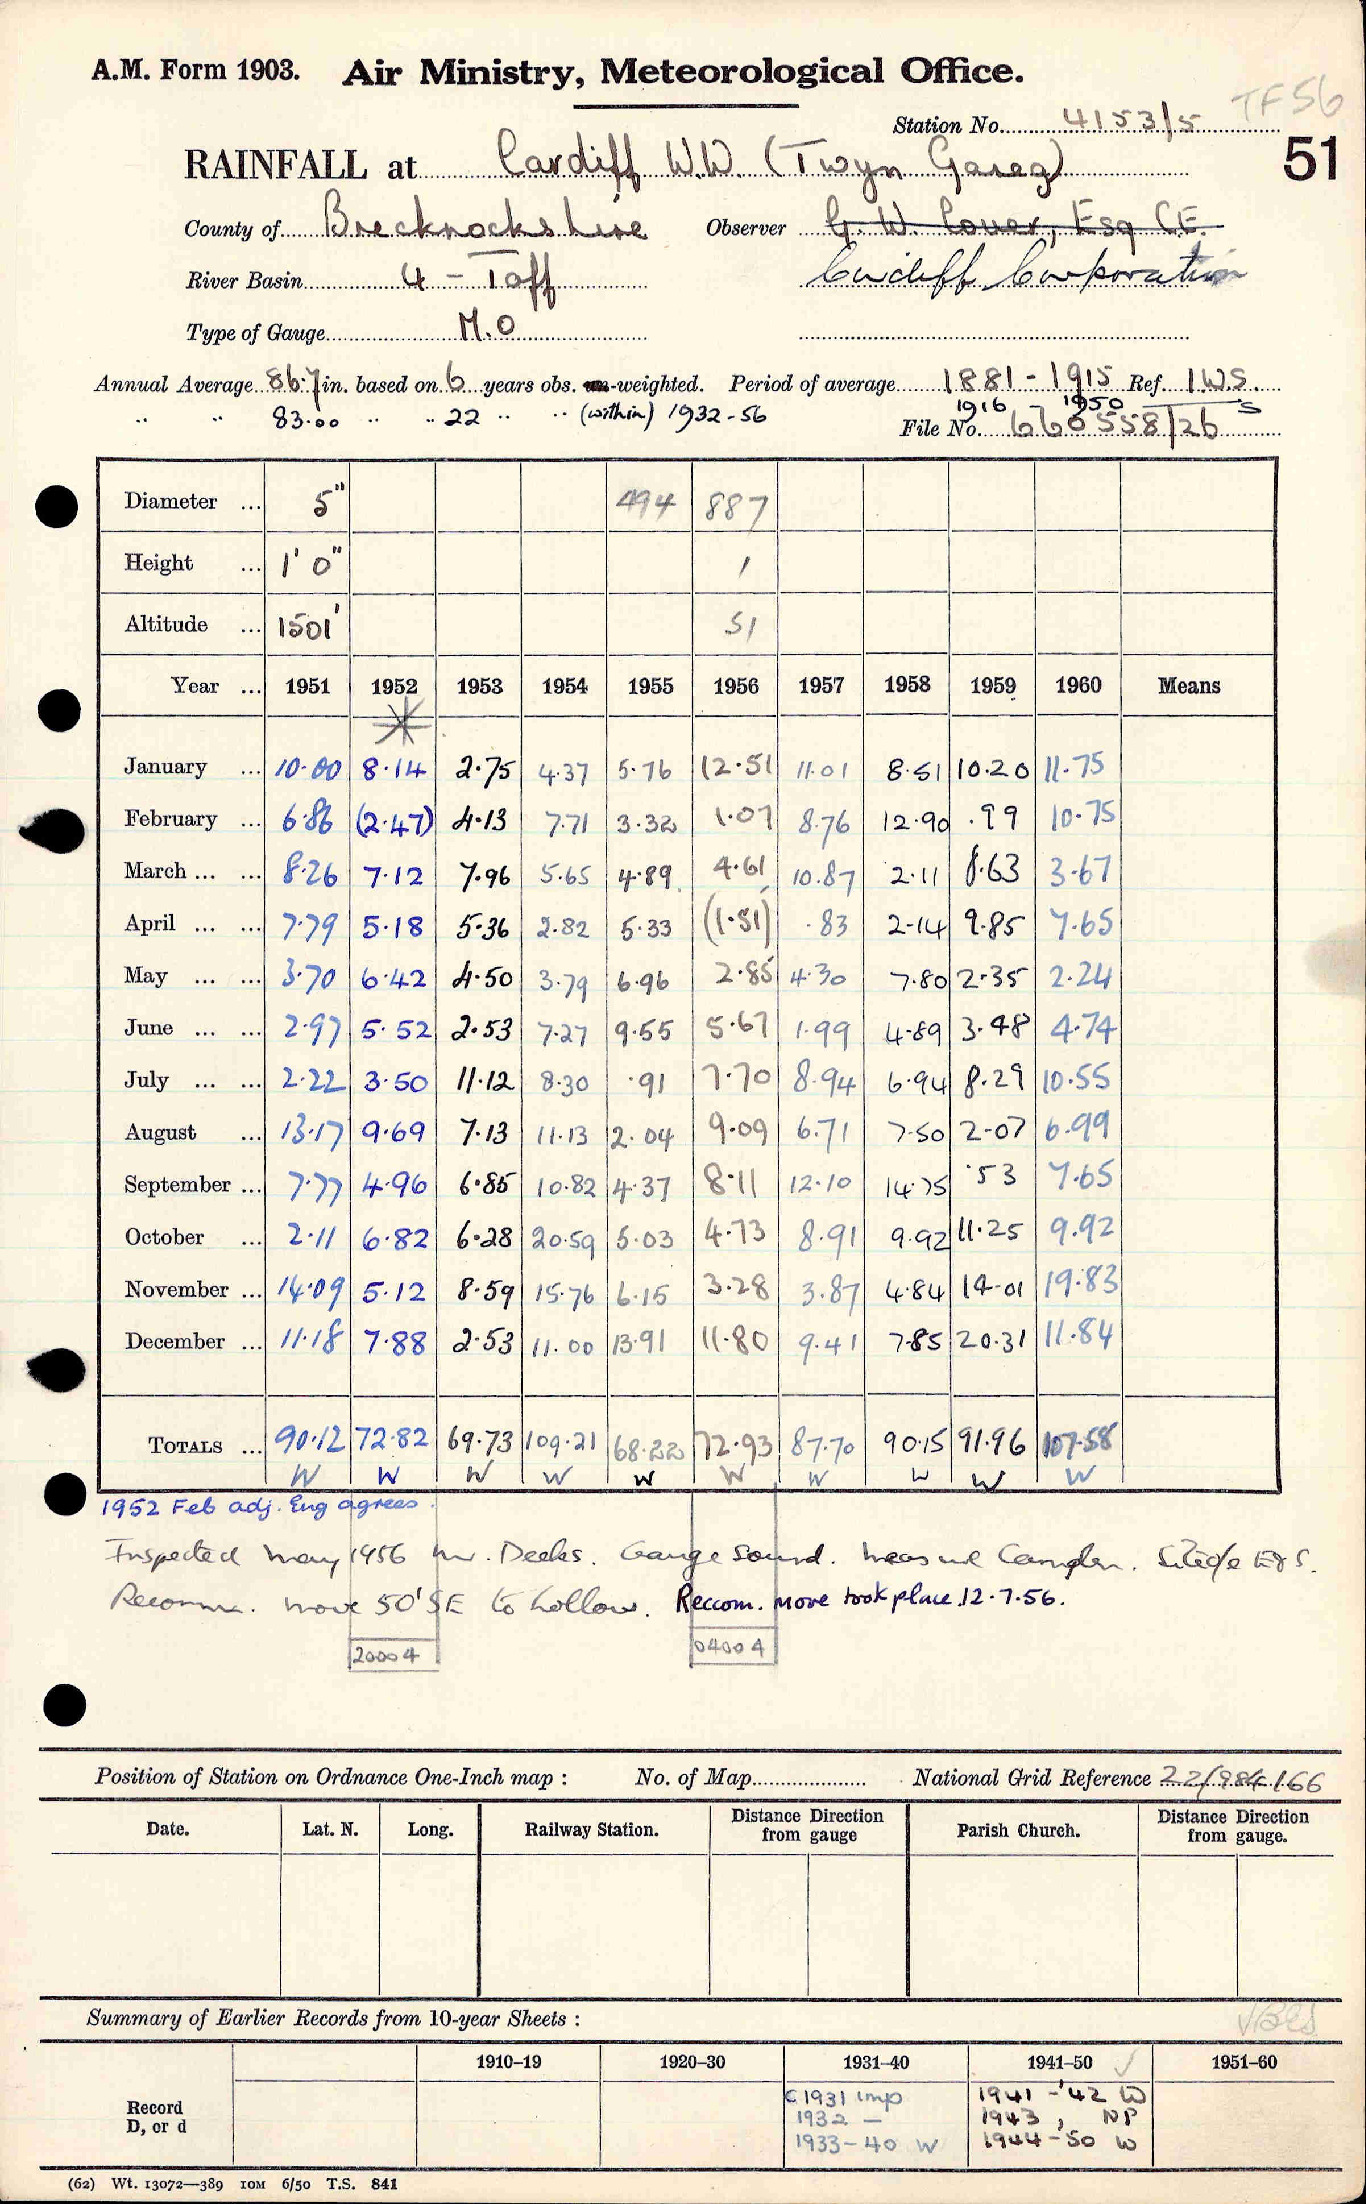 TF56
A.M. Form 1903. Air Ministry, Meteorological Office.
Station No. 4153/5
51
RAINFALL at Cardiff W.W. (Twyn Gareg)
County of Brecknockshire Observer G. W. Esq C.E.
River Basin 4 - Taff Cardiff Corporation
Type of Gauge M.O
Annual Average 86.7 in. based on 6 years obs. -weighted. Period of average 1881 - 1915 Ref. IWS.
" " 83.00 " " 22 " " (within) 1932-56 1916 1950 S
File No. 660558/26
Diameter ... 5" 494 887
Height ... 1' 0" 1
Altitude ... 1501' 51
Year ... 1951 1952 1953 1954 1955 1956 1957 1958 1959 1960 Means
January ... 10.00 8.14 2.75 4.37 5.76 12.51 11.01 8.51 10.20 11.75
February ... 6.86 (2.47) 4.13 7.71 3.32 1.07 8.76 12.90 .99 10.75
March ... ... 8.26 7.12 7.96 5.65 4.89 4.61 10.87 2.11 8.63 3.67
April ... ... 7.79 5.18 5.36 2.82 5.33 (1.51) .83 2.14 9.85 7.65
May ... ... 3.70 6.42 4.50 3.79 6.96 2.85 4.30 7.80 2.35 2.24
June ... ... 2.97 5.52 2.53 7.27 9.55 5.67 1.99 4.89 3.48 4.74
July ... ... 2.22 3.50 11.12 8.30 .91 7.70 8.94 6.94 8.29 10.55
August ... 13.17 9.69 7.13 11.13 2.04 9.09 6.71 7.50 2.07 6.99
September ... 7.77 4.96 6.85 10.82 4.37 8.11 12.10 14.75 .53 7.65
October ... 2.11 6.82 6.28 20.59 5.03 4.73 8.91 9.92 11.25 9.92
November ... 14.09 5.12 8.59 15.76 6.15 3.28 3.87 4.84 14.01 19.83
December ... 11.18 7.88 2.53 11.00 13.91 11.80 9.41 7.85 20.31 11.84
TOTALS ... 90.12 72.82 69.73 109.21 68.22 72.93 87.70 90.15 91.96 107.58
W W W W W W W W W W
1952 Feb adj. Eng agrees.
Inspected May 1956 Mr. Deeks. Gauge sound. Measure Camden. Site o/e E & S.
Recomm. move 50' SE to hollow. Reccom. move took place 12.7.56.
20004 04004
Position of Station on Ordnance One-Inch map : No. of Map National Grid Reference 22/984166
Date. Lat. N. Long. Railway Station. Distance Direction from gauge Parish Church. Distance Direction from gauge.
Summary of Earlier Records from 10-year Sheets :
1910–19 1920–30 1931–40 1941–50 1951–60
Record D, or d
C1931 imp 1941 - '42 W
1932 — 1943, NP
1933 - 40 W 1944 - 50 W
(62) Wt. 13072—389 10M 6/50 T.S. 841